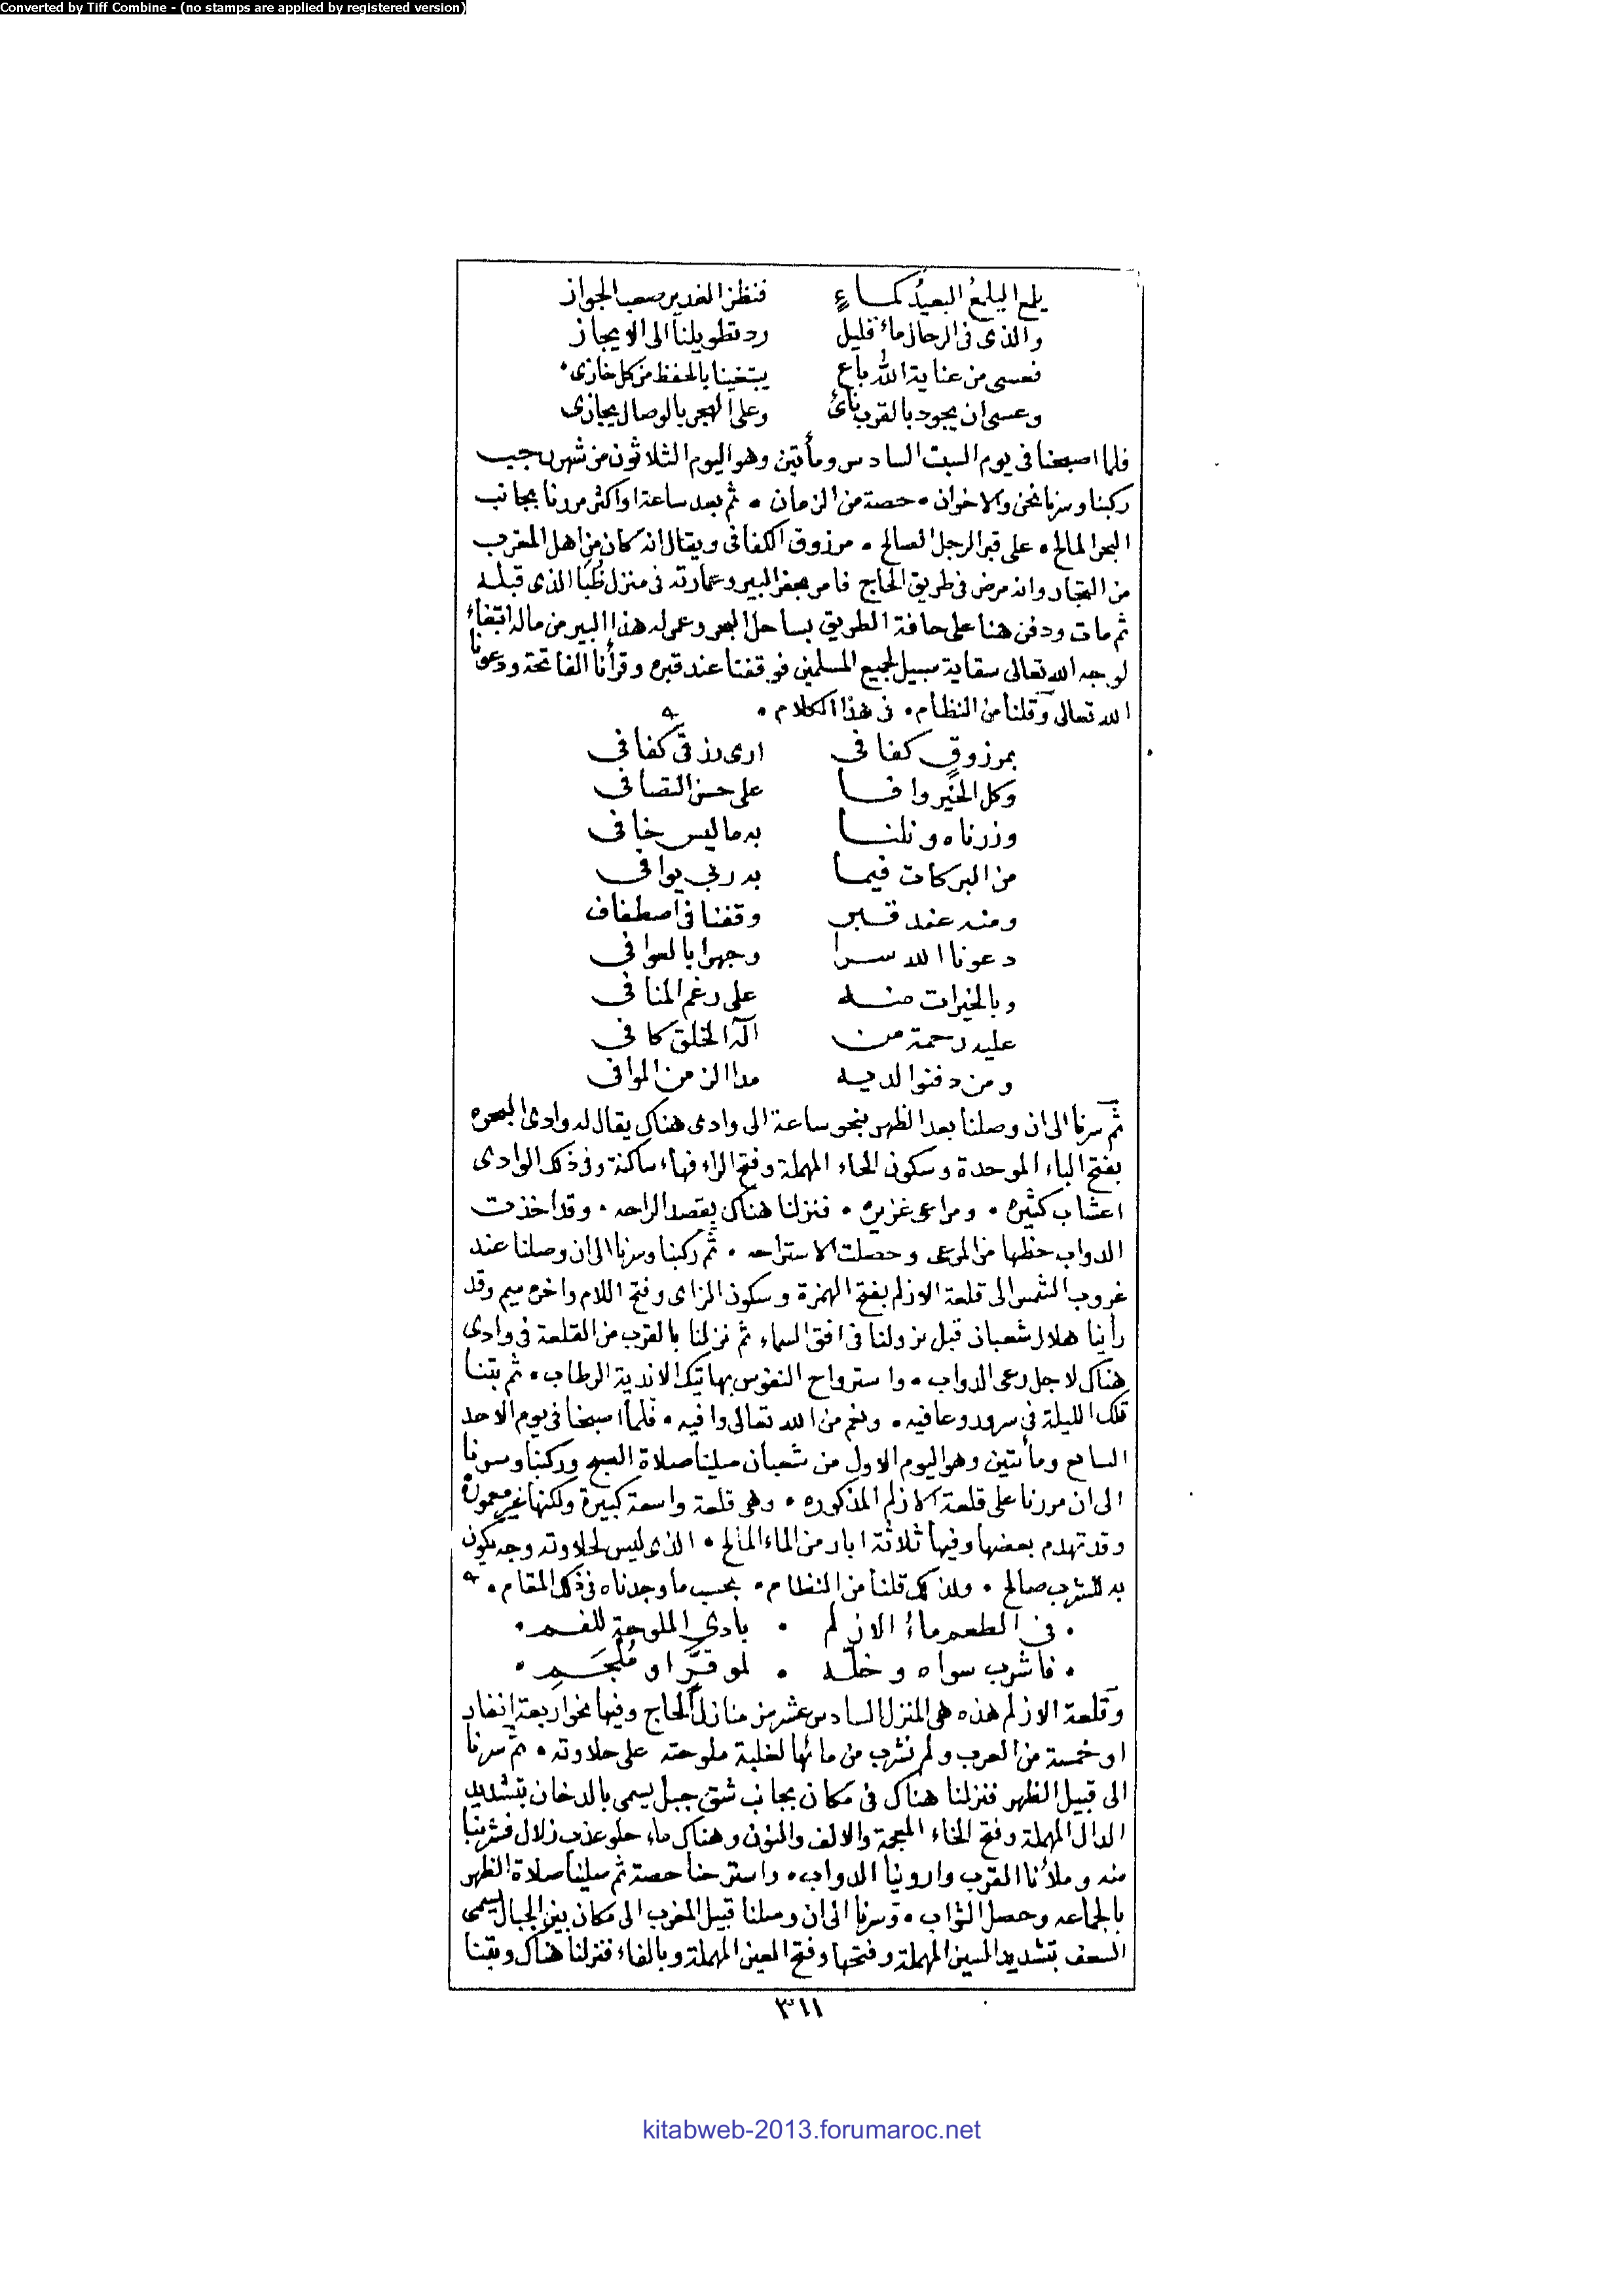 Converted by Tiff Combine - (no stamps are applied by registered version)
يلمع اليلمع البعيد كماءٍ فنظن الغدير صعب الجواز
والذى فى الرحال ماء قليل رد تطويلنا الى الايجاز
فعسى من عناية الله باع يبتغينا بالحفظ من كل خازى
وعسى ان يجود بالقرب نائ وعلى الهجر بالوصال يجازى
فلما اصبحنا فى يوم السبت السادس ومأتين وهو اليوم الثلاثون من شهر رجب
ركبنا وسرنا نحن والاخوان • حصة من الزمان • ثم بعد ساعة او اكثر مررنا بجانب
البحر المالح • على قبر الرجل الصالح • مرزوق الكفافى ويقال انه كان من اهل المغرب
من التجار وانه مرض فى طريق الحاج فامر بحفر البير وعمارته فى منزل ظبا الذى قبله
ثم مات ودفن هنا على حافة الطريق بساحل البحر وعمر له هذا البير من ماله ابتغاء
لوجه الله تعالى سقاية سبيل لجميع المسلمين فوقفنا عند قبره وقرأنا الفاتحة ودعونا
الله تعالى وقلنا من النظام • فى هذا الكلام •
بمرزوقٍ كفافى ارى رزقى كفافى
وكل الخير وافا على حسن التصافى
وزرناه ونلنا به ما ليس خافى
من البركات فيما به ربي يوافى
ومنه عند قبر وقفنا فى اصطفاف
دعونا الله سرا وجهرا بالعوافى
وبالخيرات منه على رغم المنافى
عليه رحمة من اله الخلق كافى
ومن دفنوا لديه مدا الزمن الموافى
ثم سرنا الى ان وصلنا بعد الظهر بنحو ساعة الى وادى هناك يقال له وادى البحره
بفتح الباء الموحدة وسكون الحاء المهملة وفتح الراء فهاء ساكنة وفى ذلك الوادى
اعشاب كثيره • ومراعى غزيره • فنزلنا هناك بقصد الراحه • وقد اخذت
الدواب حظها من المرعى وحصلت الاستراحه • ثم ركبنا وسرنا الى ان وصلنا عند
غروب الشمس الى قلعة الازلم بفتح الهمزة وسكون الزاى وفتح اللام واخره ميم وقد
رأينا هلال شعبان قبل نزولنا فى افق السماء ثم نزلنا بالقرب من القلعة فى وادى
هناك لاجل رعى الدواب • واسترواح النفوس بهاتيك الاندية الرطاب • ثم بتنا
تلك الليلة فى سرور وعافيه • ونعم من الله تعالى وافيه • فلما اصبحنا فى يوم الاحد
السابع ومأتين وهو اليوم الاول من شعبان صلينا صلاة الصبح وركبنا وسرنا
الى ان مررنا على قلعة الازلم المذكوره • وهى قلعة واسعة كبيرة ولكنها غير معمورة
وقد تهدم بعضها وفيها ثلاثة ابار من الماء المالح • الذى ليس لحلاوته وجه يكون
به للشرب صالح • ولذلك قلنا من النظام • بحسب ما وجدناه فى ذلك المقام •
• فى الطعم ماء الازلم • بادى الملوحة للفم •
• فاشرب سواه وخله • لموقرٍ او مُلجَمِ •
وقلعة الازلم هذه هى المنزل السادس عشر من منازل الحاج وفيها نحو اربعة انفار
او خمسة من العرب ولم نشرب من مائها لغلبة ملوحته على حلاوته • ثم سرنا
الى قبيل الظهر فنزلنا هناك فى مكان بجانب شق جبل يسمى بالدخان بتشديد
الدال المهملة وفتح الخاء المعجمة والالف والنون وهناك ماء حلو عذب زلال فشربنا
منه وملأنا القرب واروينا الدواب • واسترحنا حصة ثم صلينا صلاة الظهر
بالجماعه وحصل الثواب • وسرنا الى ان وصلنا قبيل المغرب الى مكان بين الجبال يسمى
السعف بتشديد السين المهملة وفتحها وفتح العين المهملة وبالفاء فنزلنا هناك وبتنا
٣١١
kitabweb-2013.forumaroc.net